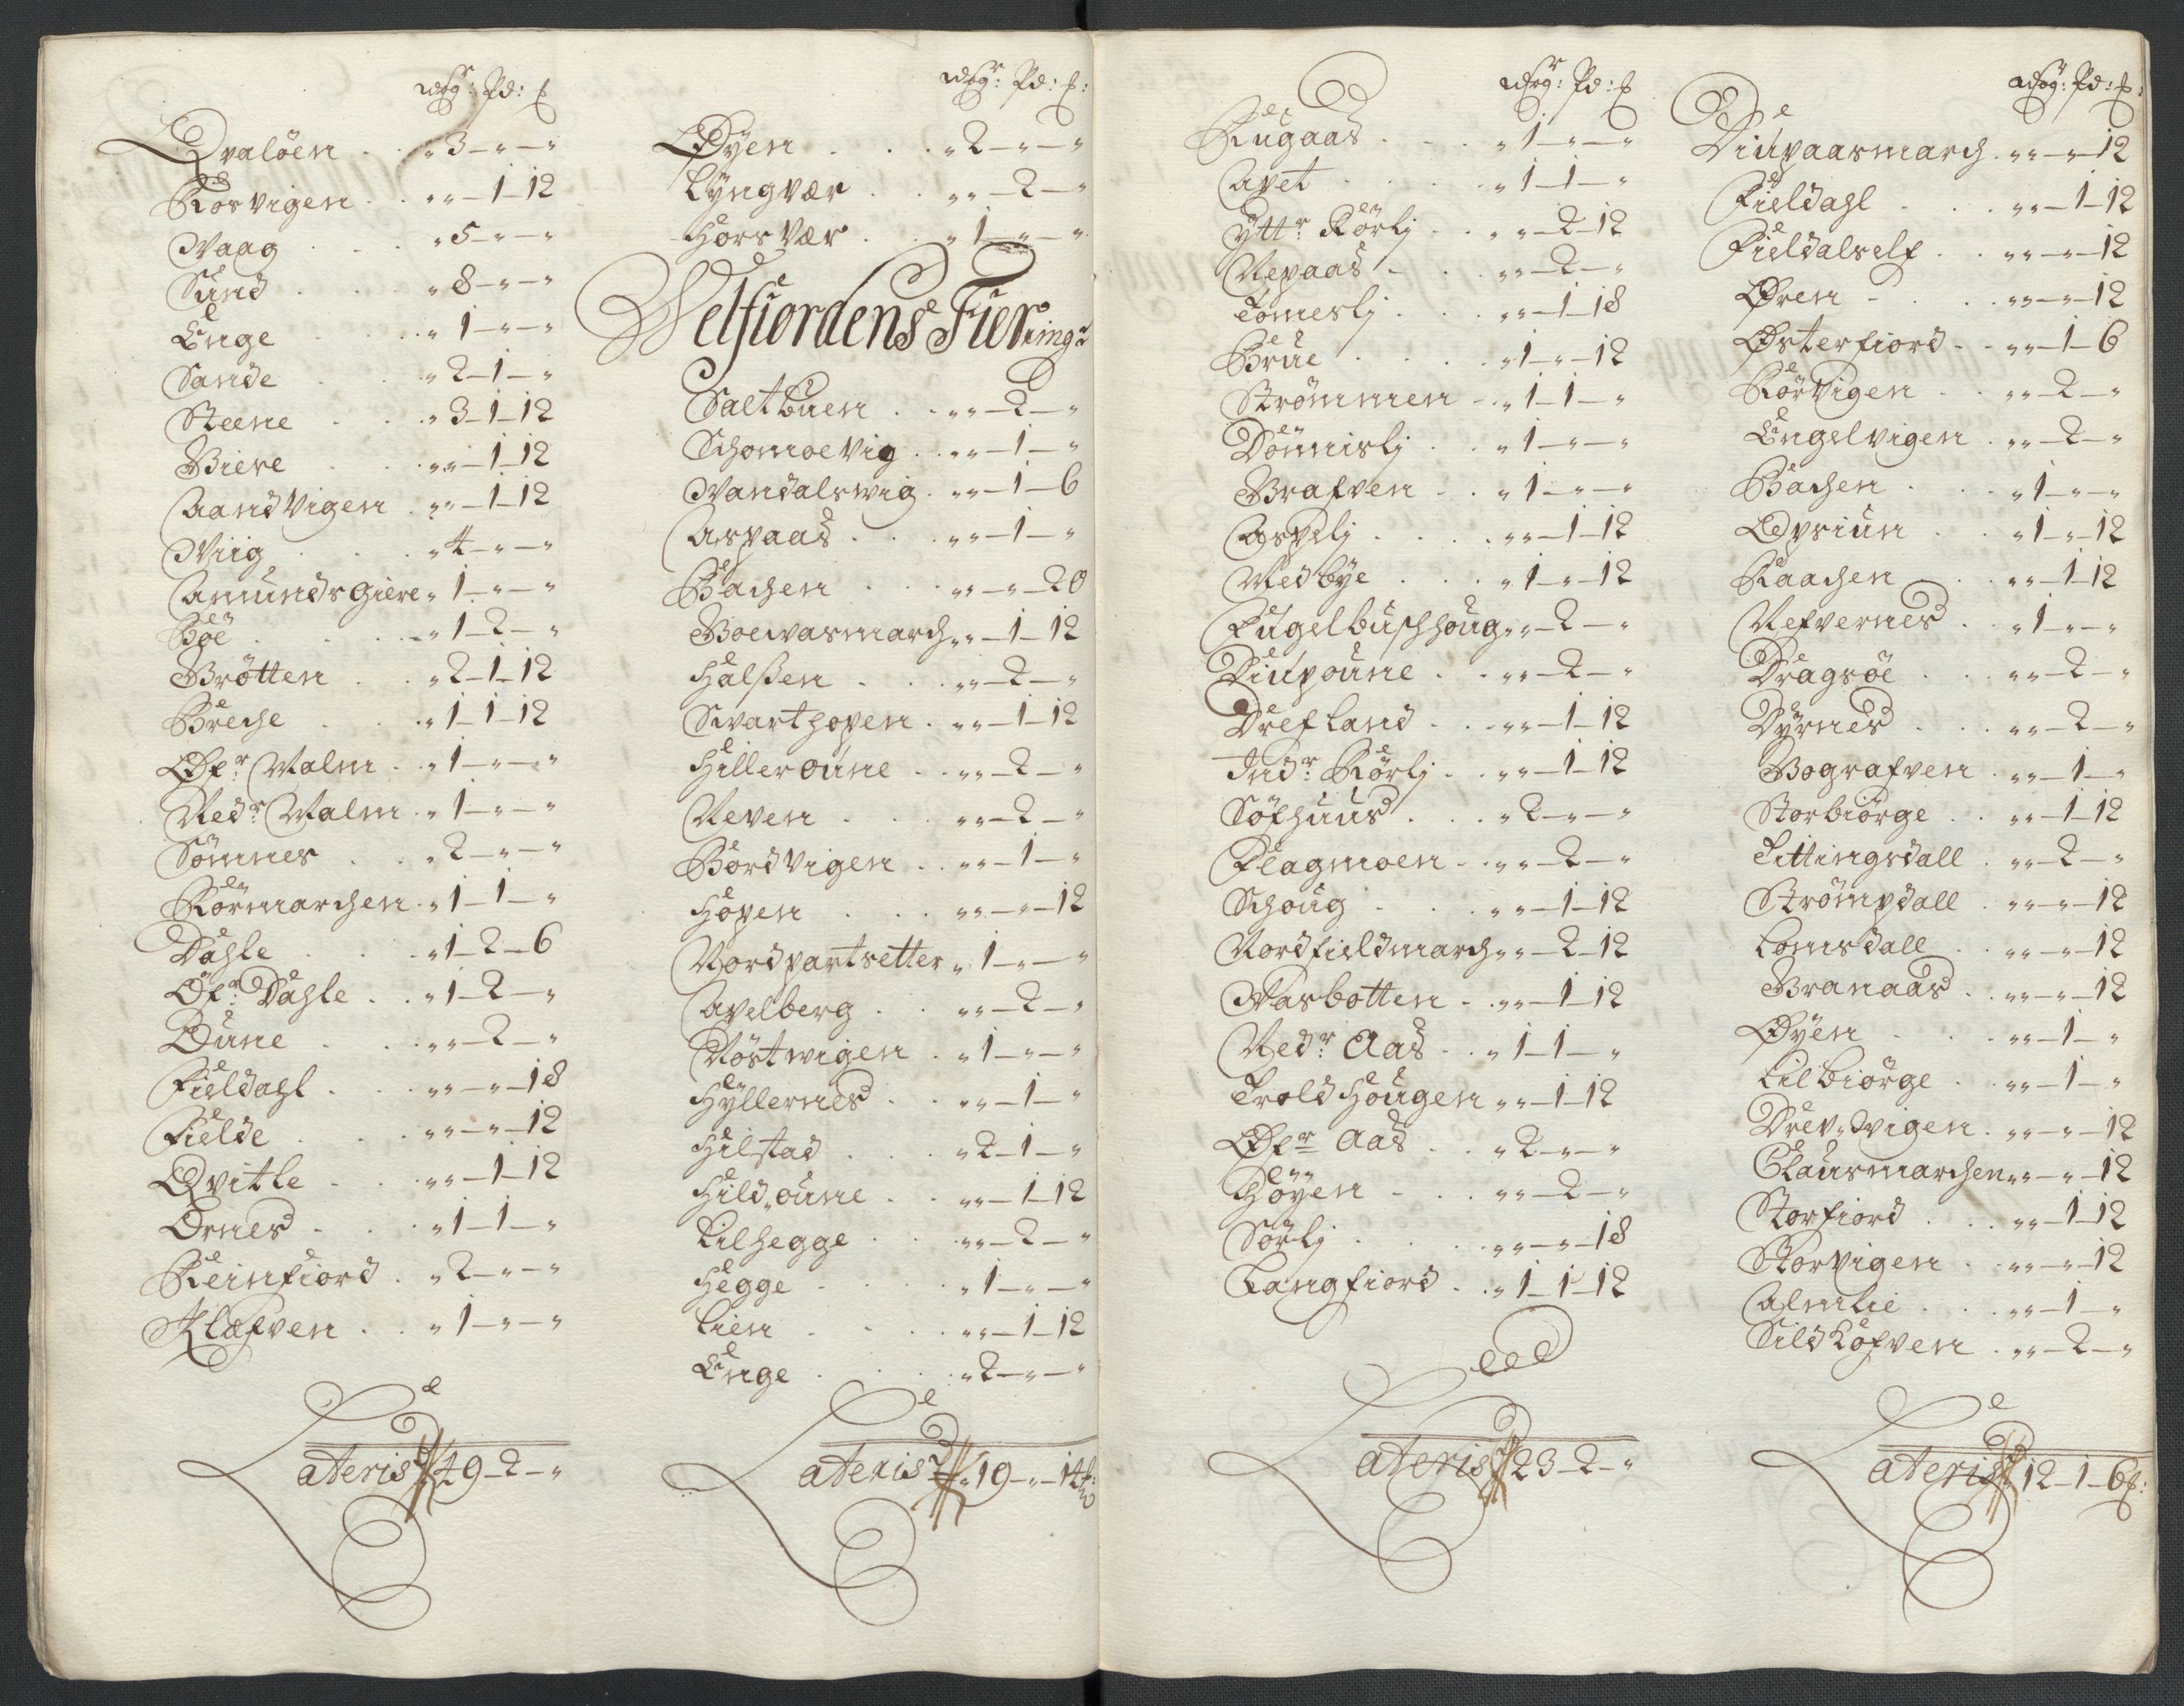 Wog: Pd: ℔
Qvaløen . . „ 3 — „ — „
Rørvigen . . „ „ — 1 — 12
Waag . . . „ 5 — „ — „
Sund . . . „ 8 — „ — „
Enge . . . „ 1 — „ — „
Sande . . „ 2 — 1 — „
Steene . . „ 3 — 1 — 12
Biere . . „ „ — 1 — 12
Aandvigen . „ „ — 1 — 12
Wiig . . . „ 4 — „ — „
Amundsgiere „ 1 — „ — „
Bøe . . . „ 1 — 2 — „
Brøtten . . „ 2 — 1 — 12
Breche . . „ 1 — 1 — 12
Øfr: Malm . „ 1 — „ — „
Nedr: Malm . „ 1 — „ — „
Sømnes . . „ 2 — „ — „
Rørmarchen . „ 1 — 1 — „
Dahle . . . „ 1 — 2 — 6
Øfr: Dahle . . „ 1 — 2 — „
Dune . . . „ „ — 2 — „
Fieldahl . . „ „ — „ — 18
Fielde . . . „ „ — „ — 12
Qvitle . . . „ „ — 1 — 12
Ornes . . . „ 1 — 1 — „
Reinfiord . „ 2 — „ — „
Klafven . . „ 1 — „ — „
Lateris 49 — 2 — „
Wog: Pd: ℔:
Øyen . . . „ 2 — „ — „
Lyngvær . . „ „ — 2 — „
Horsvær . . „ 1 — „ — „
Welfiordens Fierings
Saltbuen . . „ „ — 2 — „
Schomoevig . „ „ — 1 — „
Vandalswig . „ „ — 1 — 6
Aspaas . . . „ „ — 1 — „
Bachen . . . „ „ — „ — 20
Boewasmarch „ „ — 1 — 12
Halsen . . . „ „ — 2 — „
Svarthopen . „ „ — 1 — 12
Hilleroune . . „ „ — 2 — „
Neven . . . „ „ — 2 — „
Bordvigen . . „ „ — 1 — „
Hopen . . . „ „ — „ — 12
Nordvartsetter „ 1 — „ — „
Avelberg . . „ „ — 2 — „
Røstwigen . „ 1 — „ — „
Hyllernes . . „ „ — 1 — „
Hilstad . . . „ 2 — 1 — „
Hild„oune . . „ „ — 1 — 12
Lilhegge . . „ „ — 2 — „
Hegge . . . „ 1 — „ — „
Lien . . . „ „ — 1 — 12
Enge . . . „ 2 — „ — „
Lateris „ 19 — „ — 14 ℔:
Wog: Pd: ℔
Rugaas . . . „ 1 — „ — „
Avet . . . „ 1 — 1 — „
Yttr: Rørlj . . „ „ — 2 — 12
Nevaas . . „ „ — 2 — „
Tomeslj . . „ „ — 1 — 18
Brue . . . „ 1 — „ — 12
Strømmen . „ 1 — 1 — „
Dønnislj . . „ 1 — „ — „
Brafven . . „ 1 — „ — „
Aspelj . . . „ „ — 1 — 12
Nedbye . . . „ 1 — „ — 12
Fugelbuschhoug „ „ — 2 — „
Diupoune . . „ „ — 2 — „
Drefland . . „ „ — 1 — 12
Indr: Rørlj . . „ „ — 1 — 12
Søfhuus . . . „ 2 — „ — „
Flagmoen . . „ „ — 2 — „
Schoug . . . „ „ — 1 — 12
Nordfieldmarch „ „ — 2 — 12
Vasbotten . . „ „ — 1 — 12
Nedr: Aas . . „ 1 — 1 — „
Troldhougen „ „ — 1 — 12
Øfr: Aas . . „ 2 — „ — „
Høyen . . . „ „ — 2 — „
Sørlj . . . „ „ — „ — 18
Langfiord . . „ 1 — 1 — 12
Lateris 23 — 2 — „
Wog: Pd: ℔:
Diupaasmarch . „ „ — „ — 12
Fieldahl . . . „ „ — 1 — 12
Fieldalself . . „ „ — „ — 12
Øren . . . „ „ — „ — 12
Østerfiord . . „ „ — 1 — 6
Rørvigen . . „ „ — 2 — „
Engelvigen . „ „ — 2 — „
Bachen . . . „ 1 — „ — „
Opsiun . . . „ 1 — „ — 12
Raachen . . „ „ — 1 — 12
Nefvernes . . „ 1 — „ — „
Dragsøe . . „ „ — 2 — „
Dyrnes . . . „ „ — 2 — „
Bografven . „ „ — 1 — „
Storbiørge . . „ „ — 1 — 12
Tittingsdall . „ „ — 2 — „
Strømpdall . „ „ — „ — 12
Lomsdall . . „ „ — „ — 12
Branaas . . „ „ — „ — 12
Øyen . . . „ „ — 1 — „
Lilbiørge . . „ „ — 1 — „
Drev„vigen . „ „ — „ — 12
Clausmarchen „ „ — „ — 12
Storfiord . . „ „ — 1 — 12
Storvigen . . „ „ — „ — 12
Almlie . . . „ „ — 1 — „
Sildkøfven . „ „ — 2 — „
Lateris 12 — 1 — 6 ℔: